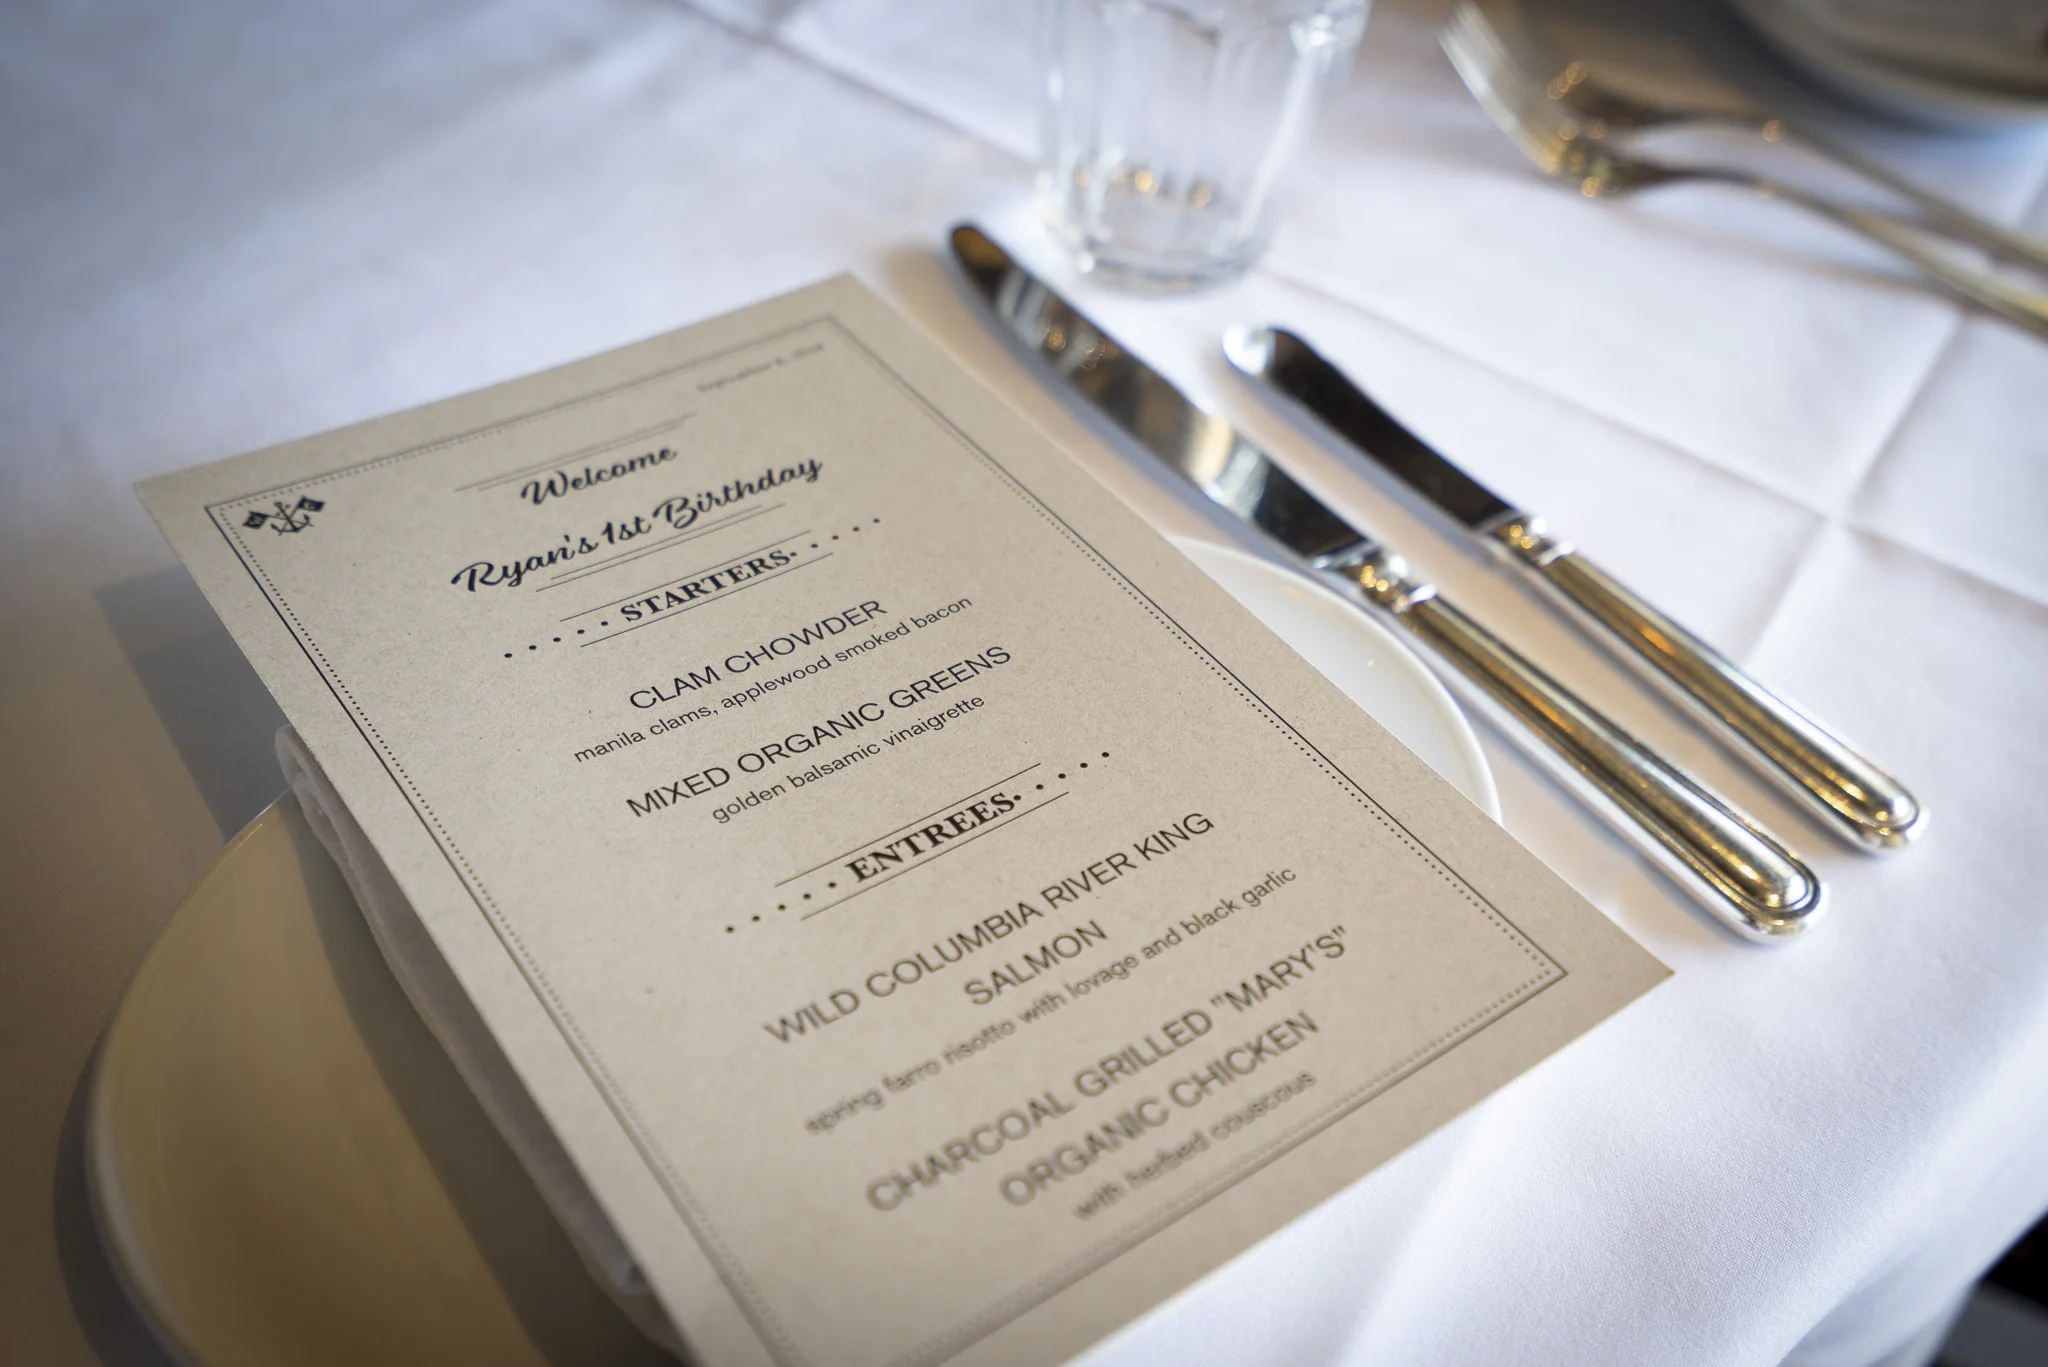 Welcome
Ryan's 1st Birthday
STARTERS
CLAM CHOWDER
manila clams, applewood smoked bacon
MIXED ORGANIC GREENS
golden balsamic vinaigrette
ENTREES
WILD COLUMBIA RIVER KING
SALMON
spring farro risotto with lovage and black garlic
CHARCOAL GRILLED "MARY'S"
ORGANIC CHICKEN
with herbed couscous